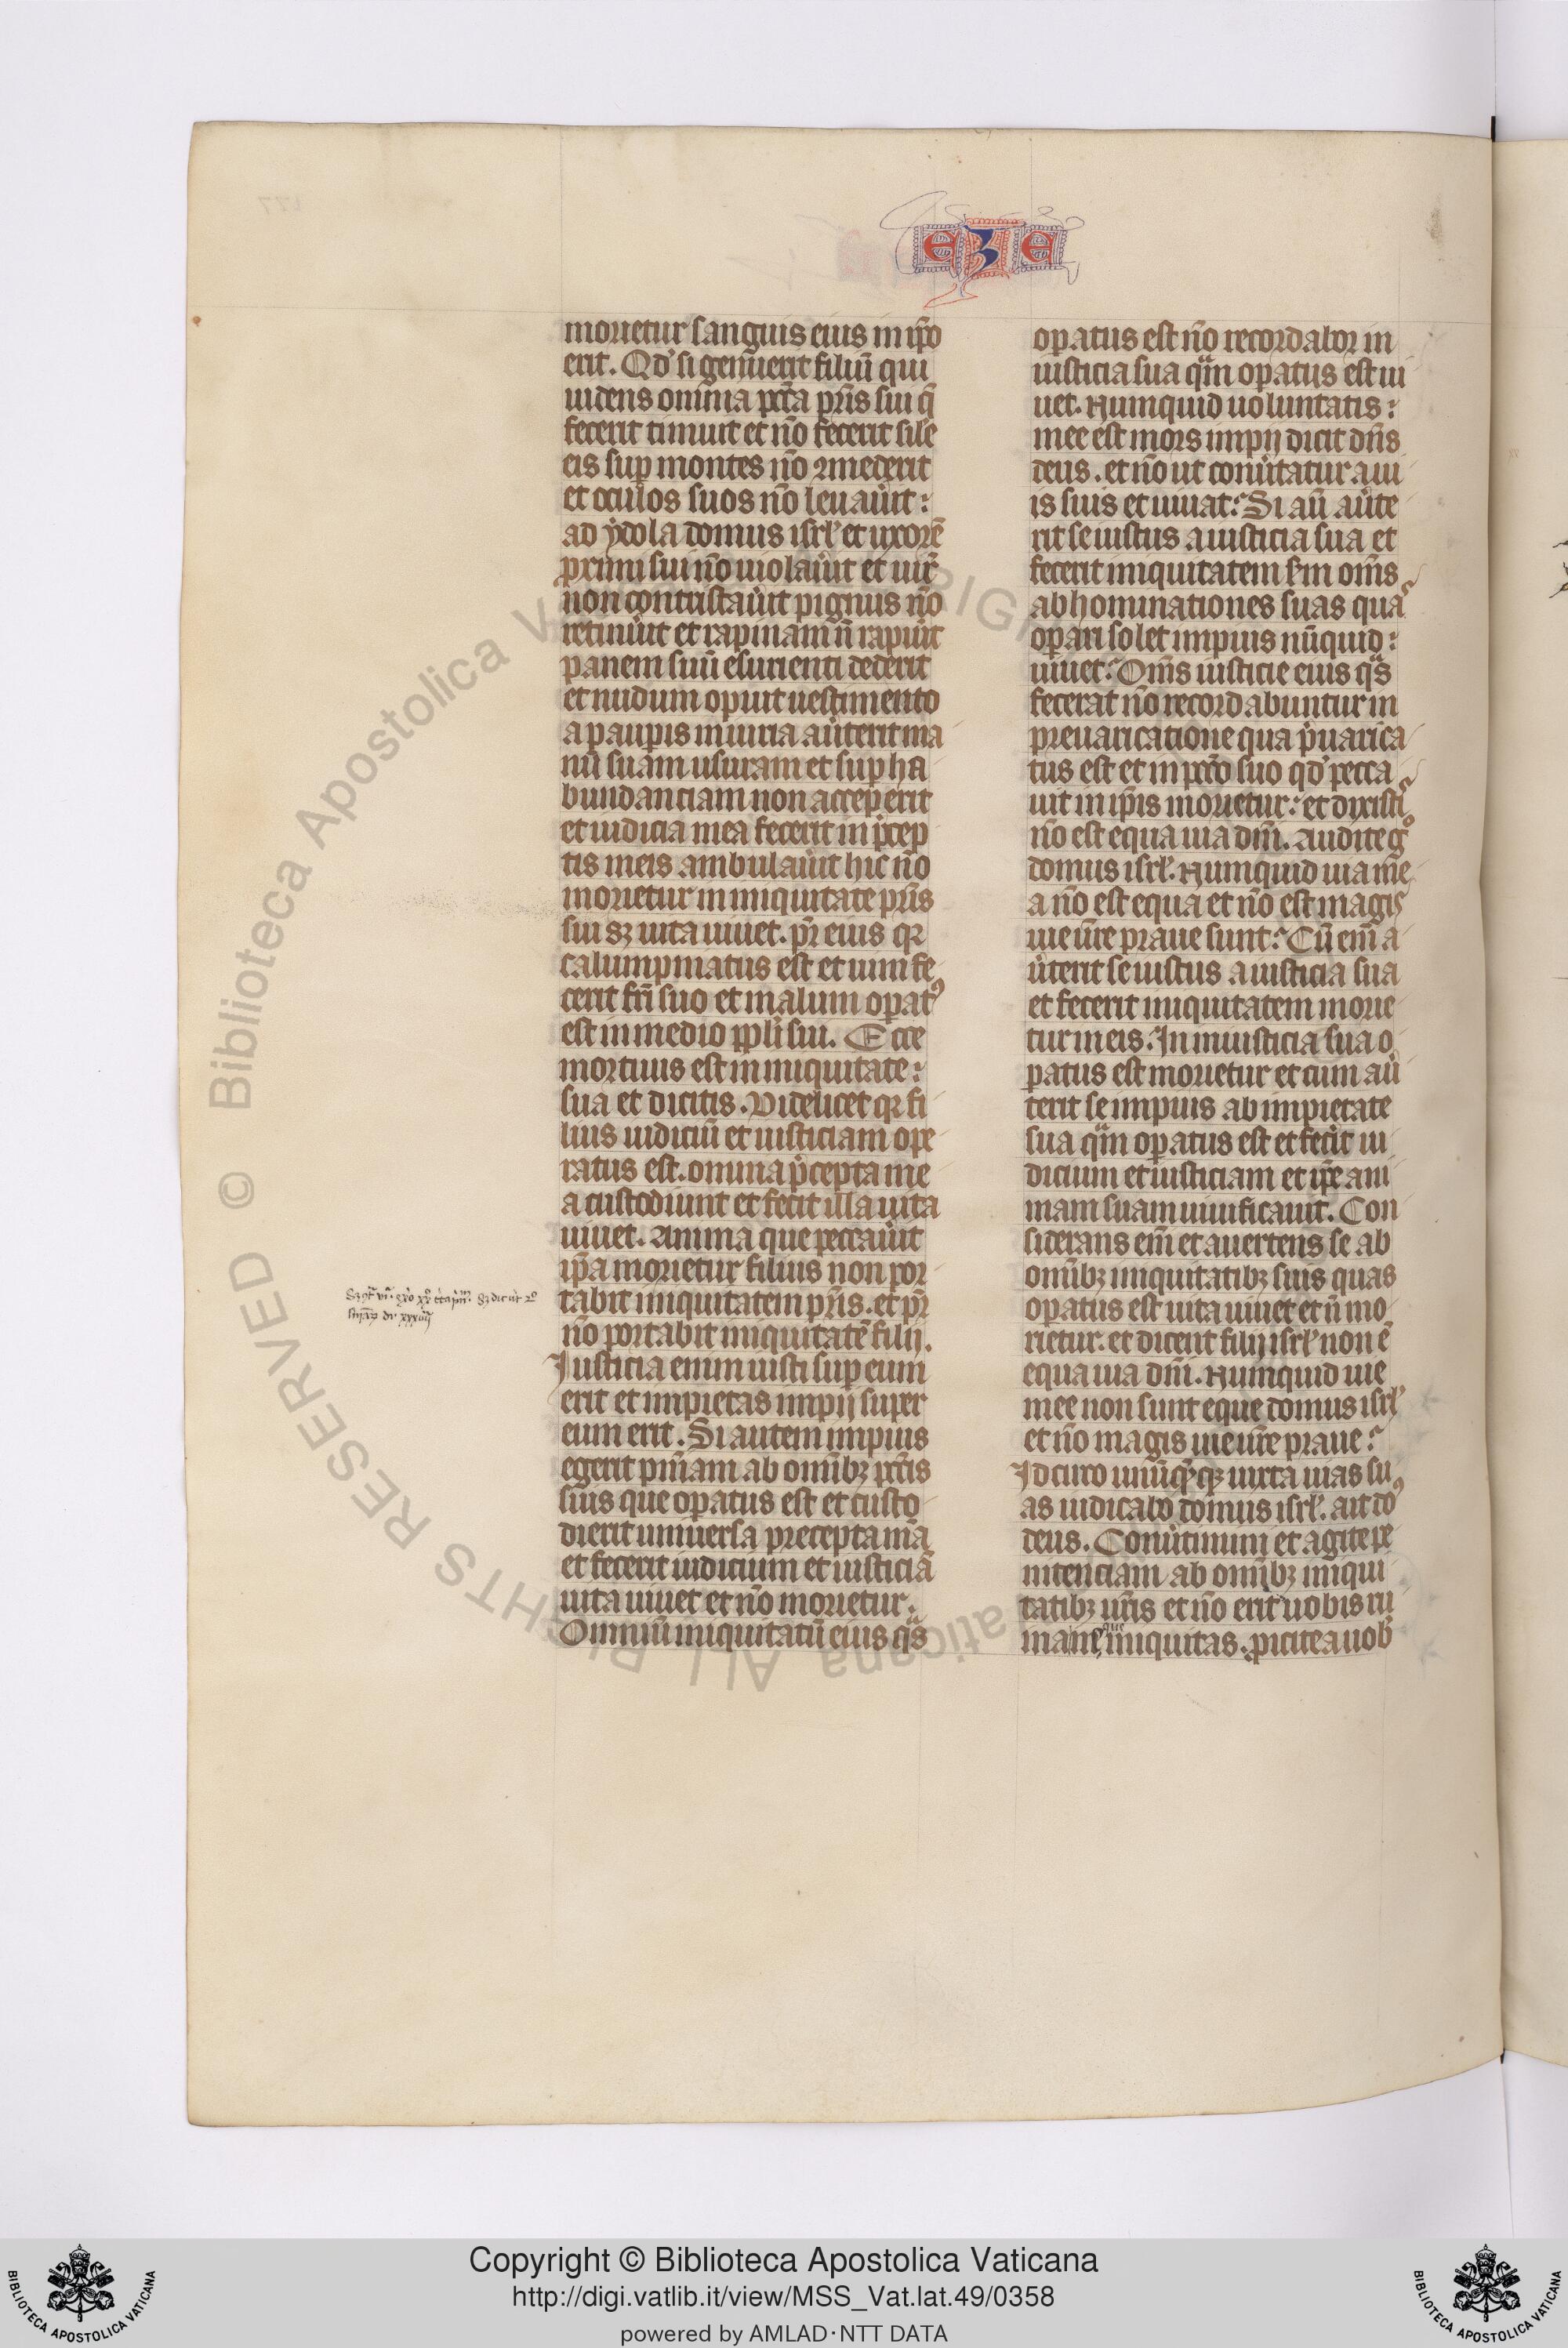 EZE
morietur sanguis eius in ip̄o
erit. Qd' si genuerit filiū qui
uidens omnia pctā pr̄is sui q̄
fecerit timuit et nō fecerit sile
eis sup montes nō ꝯmederit
et oculos suos nō leuau̾it :
ad ydola domus isrl' et uxorē
proximi sui nō uiolau̾it et uir̄
non contristau̾it pignus nō
retinu̾it et rapinam n̄ rapu̾it
panem suū esurienti dederit
et nudum opuit uestimento
a paupis iniuria au̾terit ma
nū suam usuram et sup ha
bundanciam non acceperit
et iudicia mea fecerit in p̾cep
tis meis ambulau̾it hic nō
morietur in iniquitate pr̄is
sui sꝫ uita uiuet. pr̄ eius qꝛ
calumpniatus est et uim fe
cerit frī suo et malum opatꝰ
est in medio ppl̾i sui. Ecce
mortuus est in iniquitate :
sua et dicitis. Videlicet qꝛ fi
lius iudiciū et iusticiam ope
ratus est. omnia p̾cepta me
a custodiunt et fecit illa uita
uiuet. Anima que peccau̾it
ip̄a morietur filius non por
tabit iniquitatem pr̄is. et pr̄
nō portabit iniquitatē filij.
Iusticia enim iusti sup eum
erit et impietas impij super
eum erit. Si autem impius
egerit pn̄iam ab omībꝫ pctīs
suis que opatus est et custo
dierit uniuersa precepta mā
et fecerit iudicium et iusticiā
uita uiuet et nō morietur.
Omniū iniquitatū eius qᵃs
opatus est nō recordabor in
iusticia sua qᵃm opatus est ui
uet. Numquid uoluntatis :
mee est mors impij dicit dn̄s
deus. et nō ut conu̾tatur a ui
is suis et uiuat? Si aū au̾te
rit se iustus a iusticia sua et
fecerit iniquitatem scm̄ om̄s
abhominationes suas quas
opari solet impius nūquid :
uiuet? Om̄s iusticie eius qᵃs
fecerat nō recordabuntur in
preuaricatione qua p̾uarica
tus est et in pccō suo qd' pecca
uit in ip̄is morietur : et dixistis
nō est equa uia dn̄i. Audite gͦ
domus isrl'. Numquid uia me
a nō est equa et nō est magis
uie ur̄e praue sunt? Cū enī a
u̾terit se iustus a iusticia sua
et fecerit iniquitatem morie
tur in eis. In iniusticia sua o
patus est morietur et cum au̾
terit se impius ab impietate
sua qᵃm opatus est et fec̾it iu
dicium et iusticiam et ip̄e ani
mam suam uiuificauit. Con
siderans enī et auertens se ab
omībꝫ iniquitatibꝫ suis quas
opatus est uita uiuet et n̄ mo
rietur. et dicent filij isrl' non ē
equa uia dn̄i. Numquid uie
mee non sunt eque domus isrl'
et nō magis uie ur̄e praue?
Idcirco unūqᵉqꝫ iuxta uias su
as iudicabo domus isrl'. ait dō
deus. Conu̾timini et agite pe
nitenciam ab omībꝫ iniqui
tatibꝫ ur̄is et nō erit uobis ru
inam iniquitas. piicite a uob̾
Copyright © Biblioteca Apostolica Vaticana
http://digi.vatlib.it/view/MSS_Vat.lat.49/0358
powered by AMLAD·NTT DATA
BIBLIOTECA APOSTOLICA VATICANA
BIBLIOTECA APOSTOLICA VATICANA
© Biblioteca Apostolica Vaticana ALL RIGHTS RESERVED